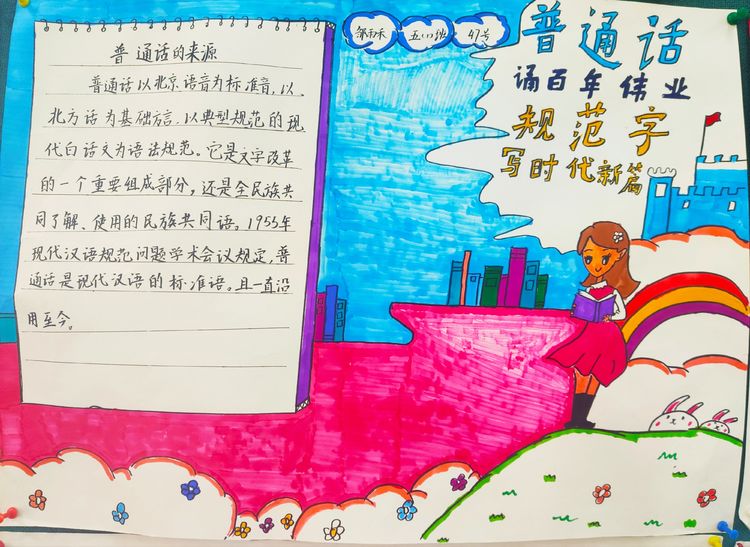 普通话的来源
普通话以北京语音为标准音，以
北方话为基础方言，以典型规范的现
代白话文为语法规范。它是文字改革
的一个重要组成部分，还是全民族共
同了解、使用的民族共同语。1955年
现代汉语规范问题学术会议规定，普
通话是现代汉语的标准语。且一直沿
用至今。
47号
普通话
诵百年伟业
规范字
写时代新篇